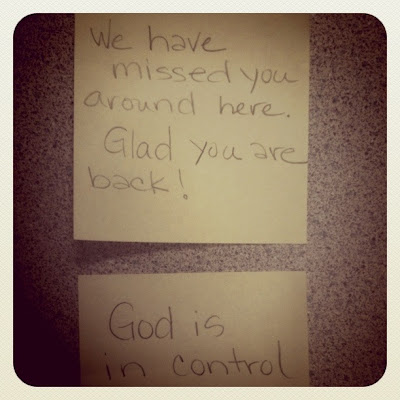 We have
missed you
around here.
Glad you are
back!
God is
in control